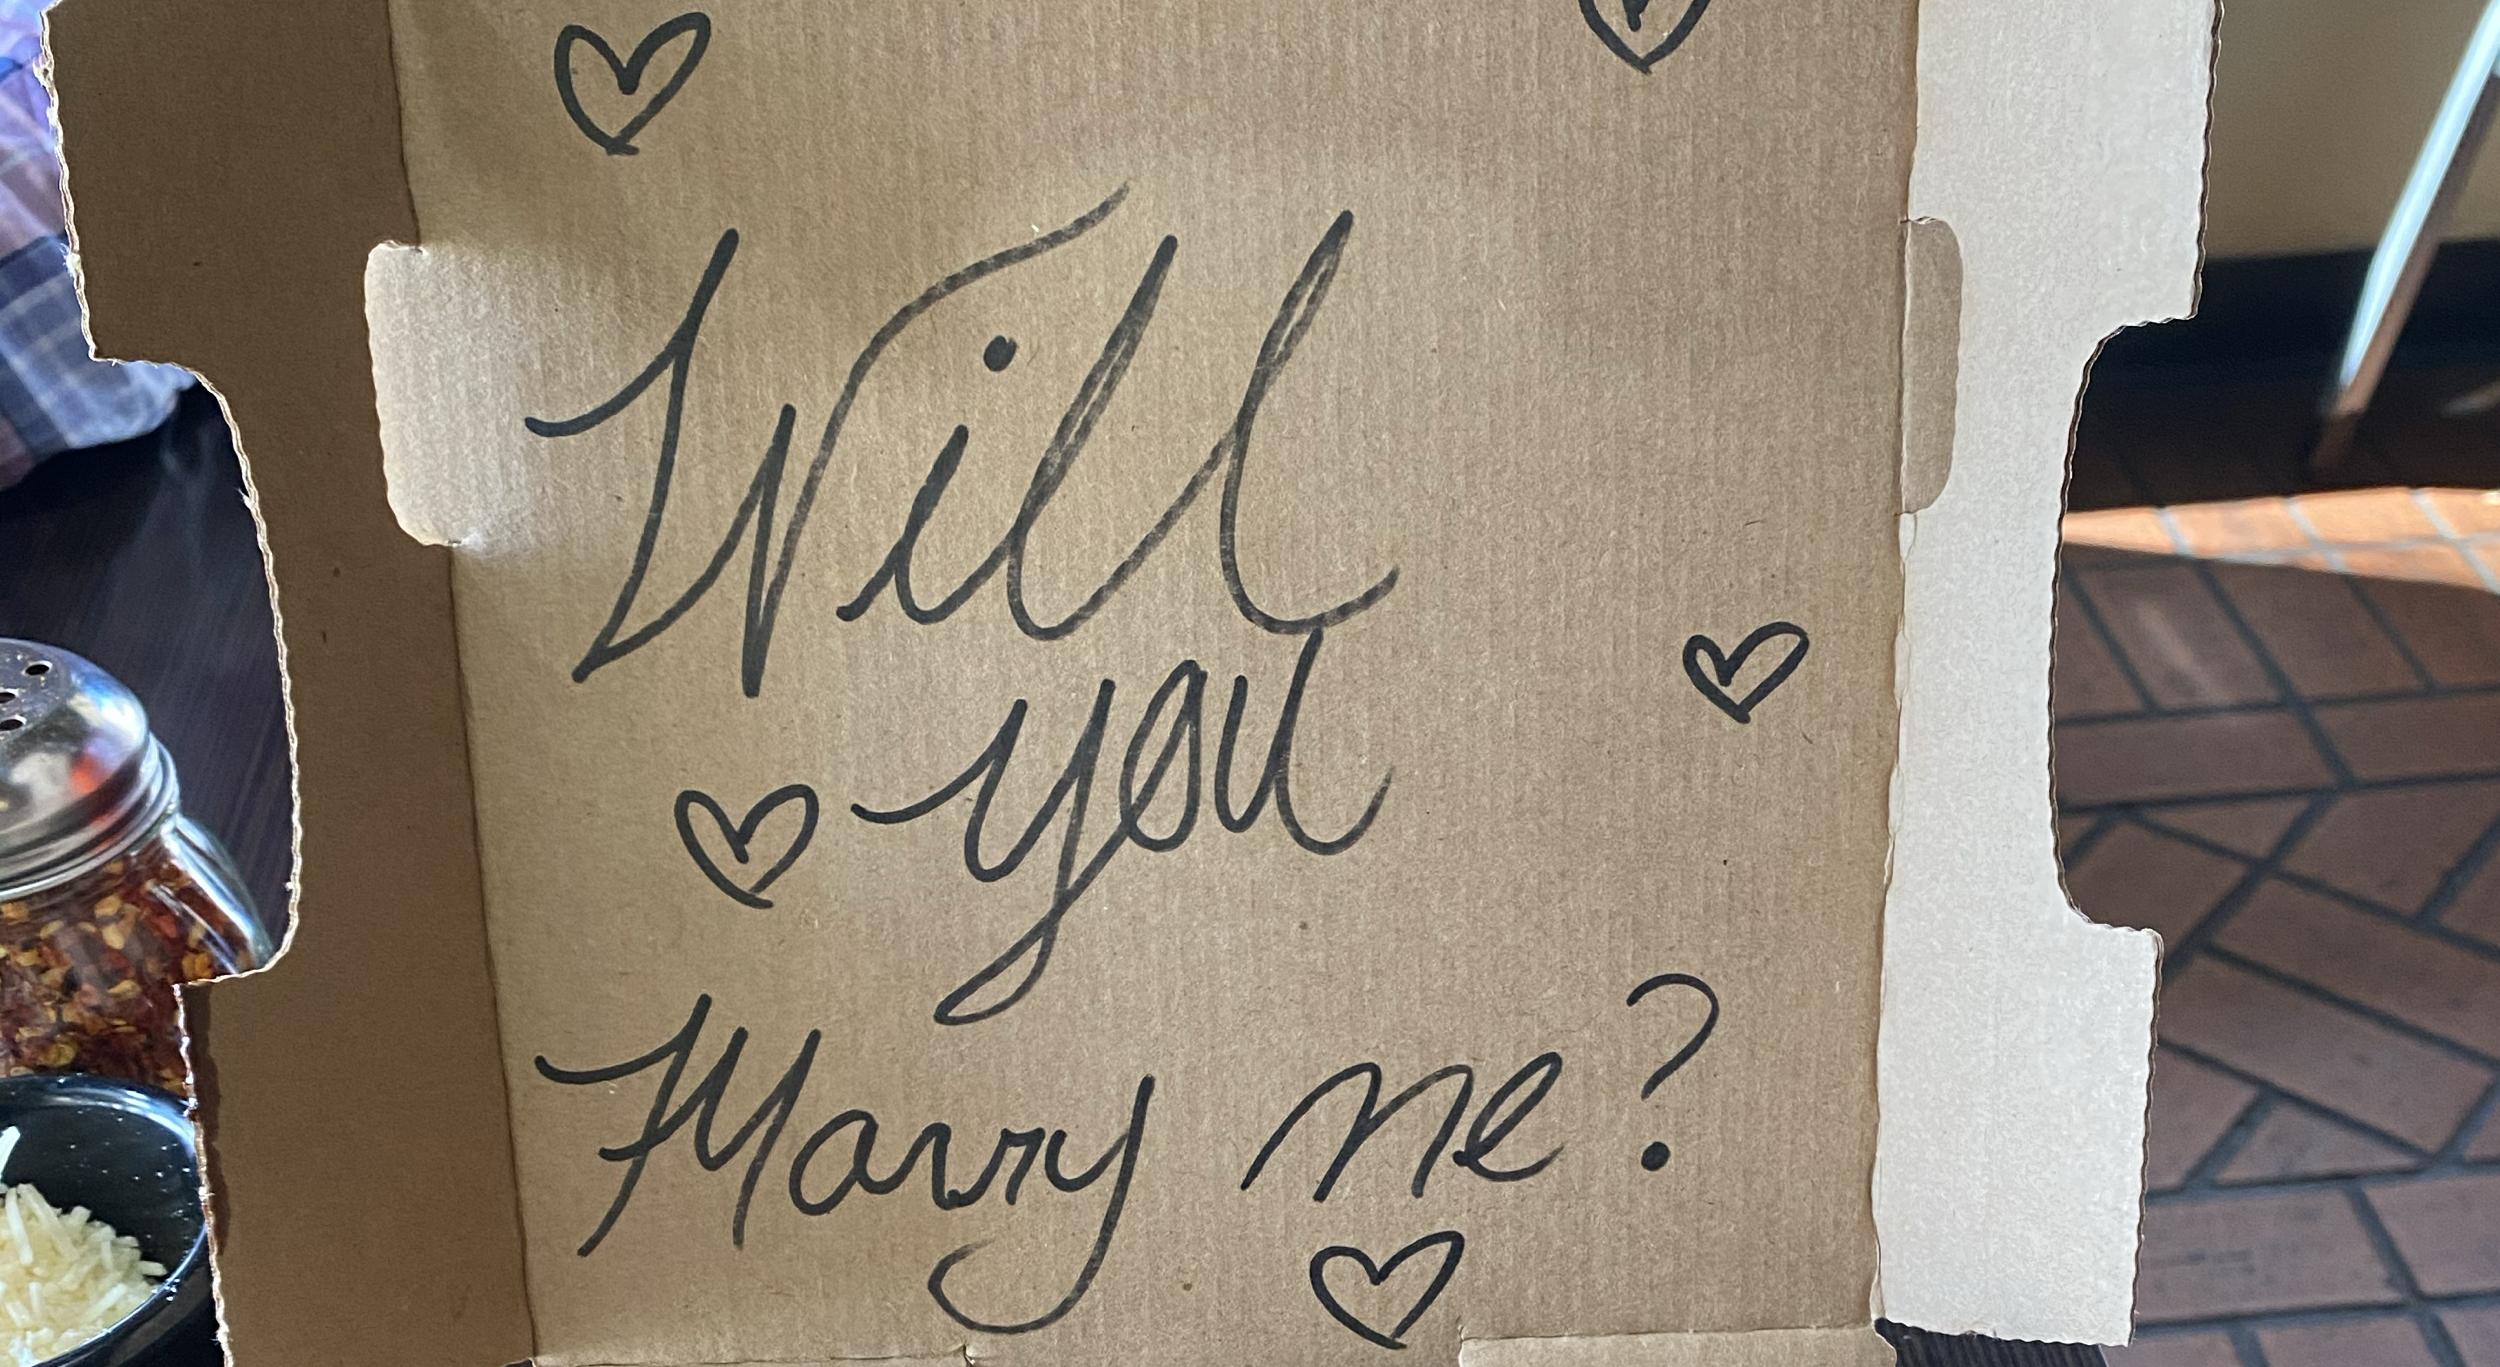 Will
you
Marry me?